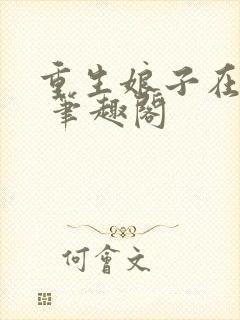 重生娘子在
筆趣閣
何會文